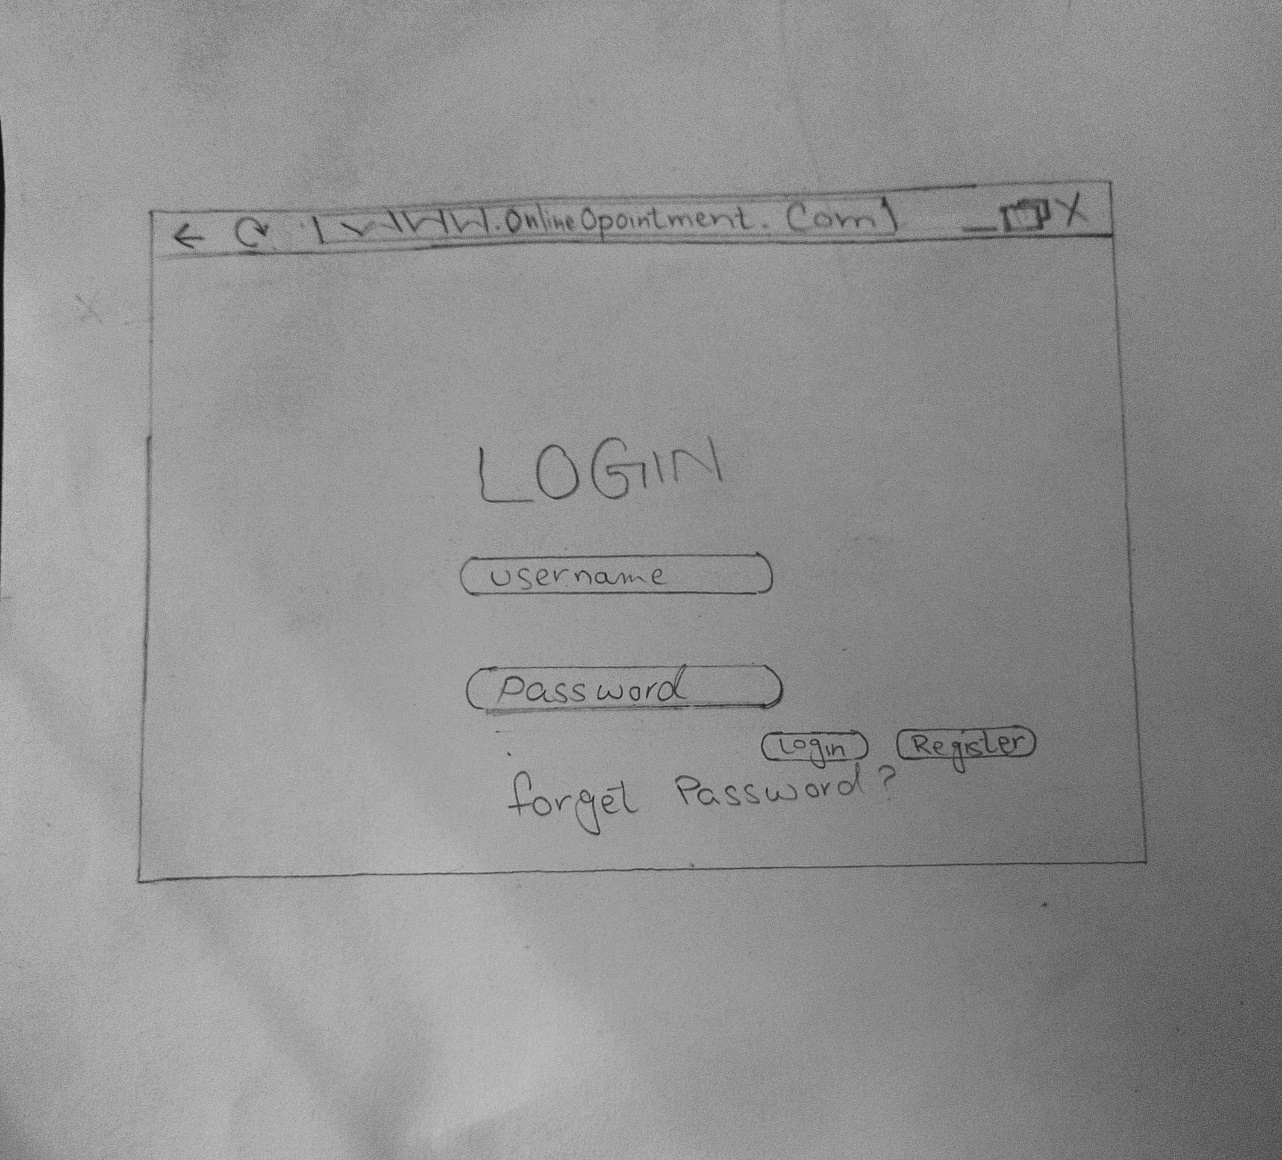 www.OnlineOpointment.Com
X
LOGIN
username
Password
Login Register
forget Password?